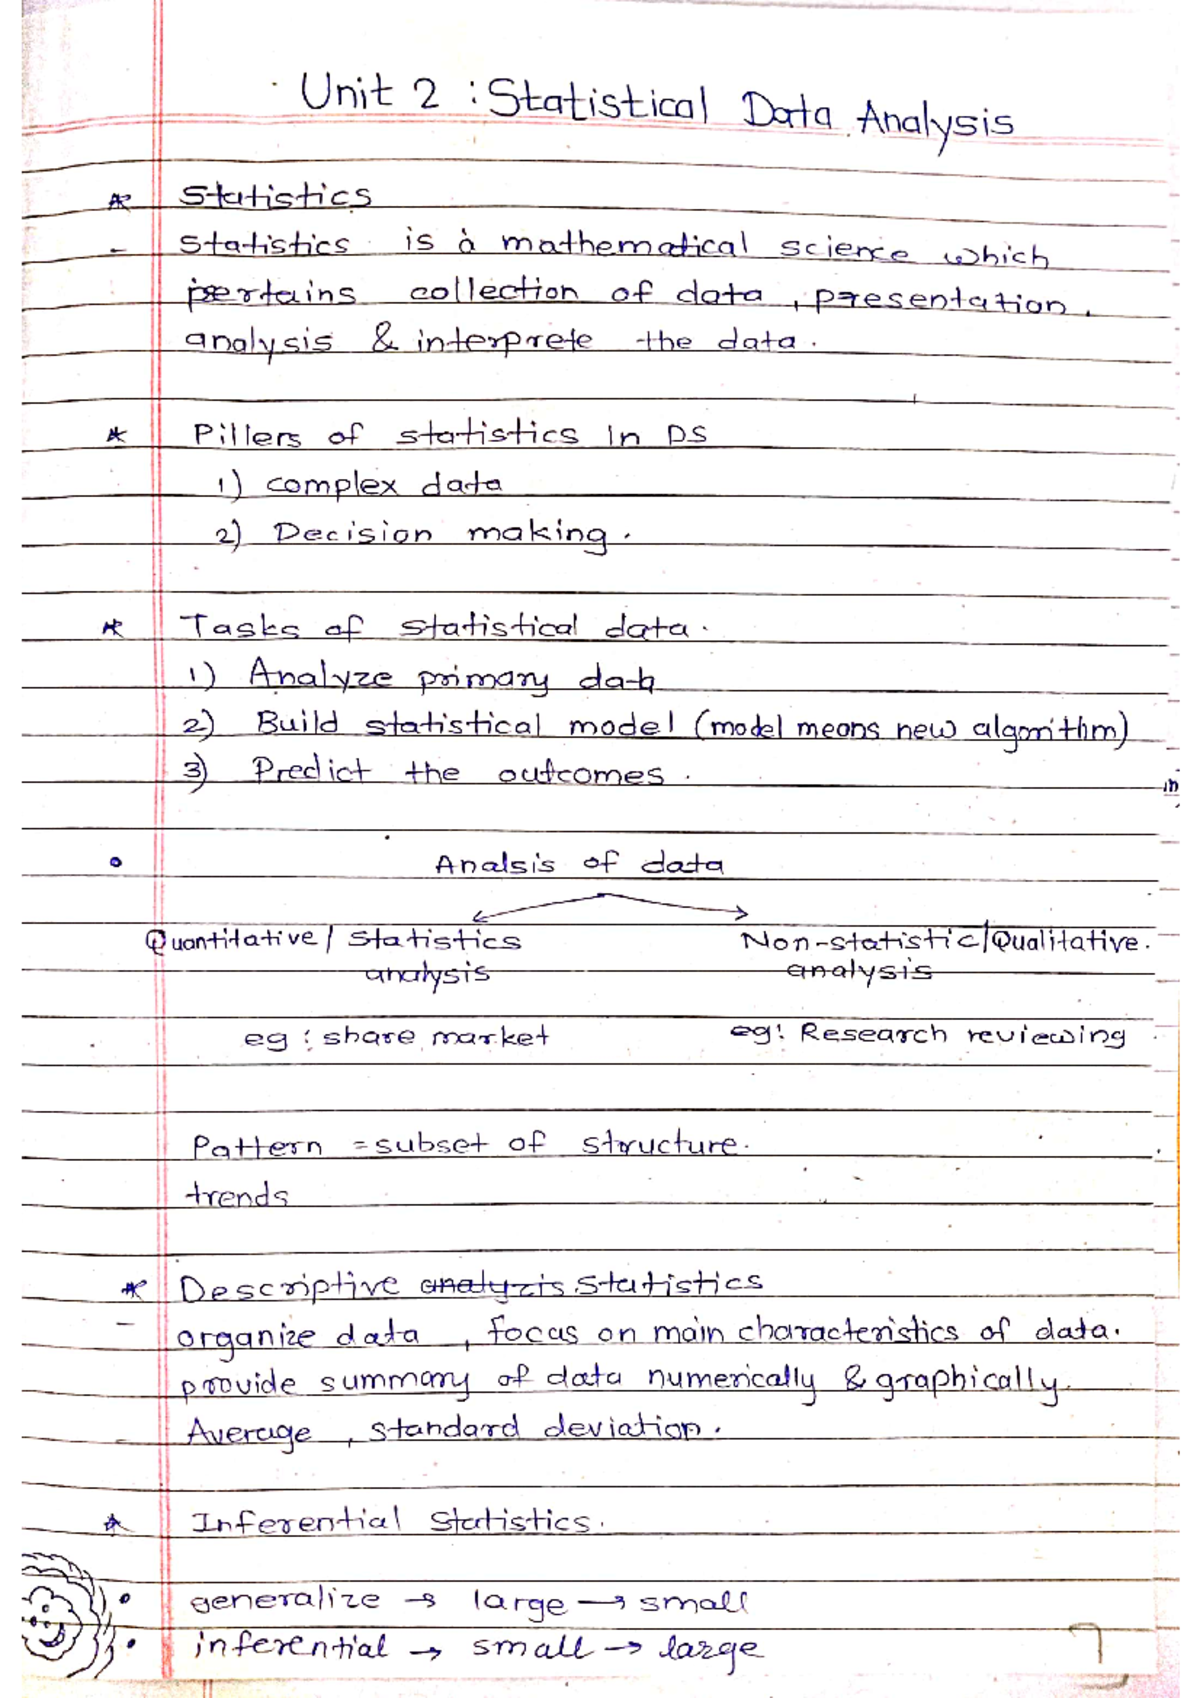 Unit 2 : Statistical Data Analysis
* Statistics
- Statistics is a mathematical science which
pertains collection of data, presentation,
analysis & interprete the data.
* Pillers of statistics in DS
1) complex data
2) Decision making.
* Tasks of statistical data.
1) Analyze primary data
2) Build statistical model (model means new algorithm)
3) Predict the outcomes.
in
Analsis of data
Quantitative / Statistics Non-statistic/Qualitative.
analysis analysis
eg : share market eg: Research reviewing
Pattern = subset of structure.
trends
* Descriptive analyzis Statistics
- organize data, focus on main characteristics of data.
provide summary of data numerically & graphically.
- Average, standard deviation.
* Inferential Statistics.
• generalize → large → small
• inferential → small → large